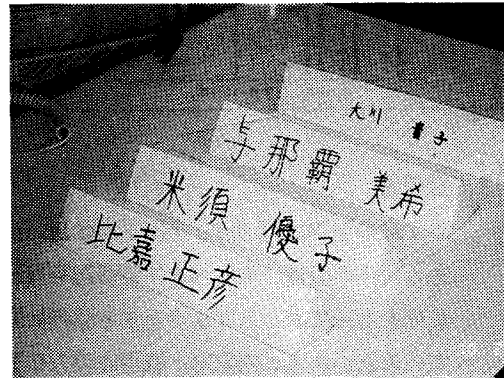 大川 子
与那覇 美希
米須 優子
比嘉 正彦